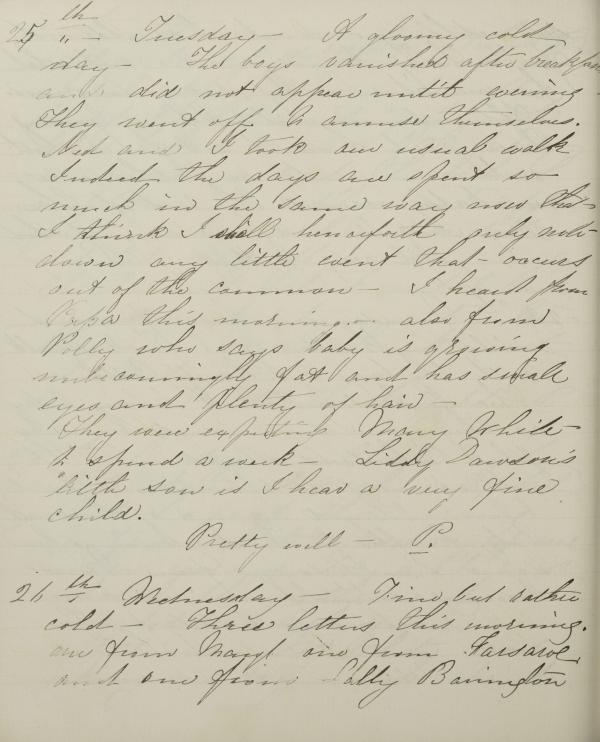 25th " - Tuesday - A gloomy cold
day - The boys vanished after breakfast
and did not appear until evening
They went off to amuse themselves.
Ned and I took our usual walk
Indeed the days are spent so
much in the same way now that
I think I shall henceforth only note
down any little event that occurs
out of the common - I heard from
Papa this morning - also from
Polly who says baby is growing
unbecomingly fat and has small
eyes and plenty of hair -
They were expecting Mary White
to spend a week - Liddy Dawson's
little son is I hear a very fine
child.
Pretty well - P.
26th Wednesday - Fine but rather
cold - Three letters this morning.
one from one from
and one from Barrington